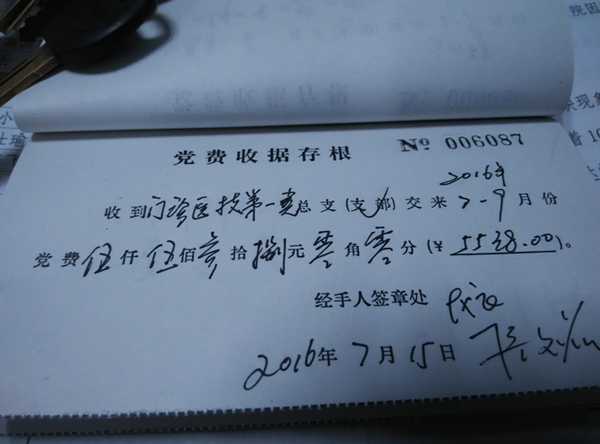 党费收据存根 Nº 006087
2016年
收到门诊医技第一党总支(支部)交来7-9月份
党费伍仟伍佰叁拾捌元零角零分(¥5538.00)。
经手人签章处
2016年7月15日